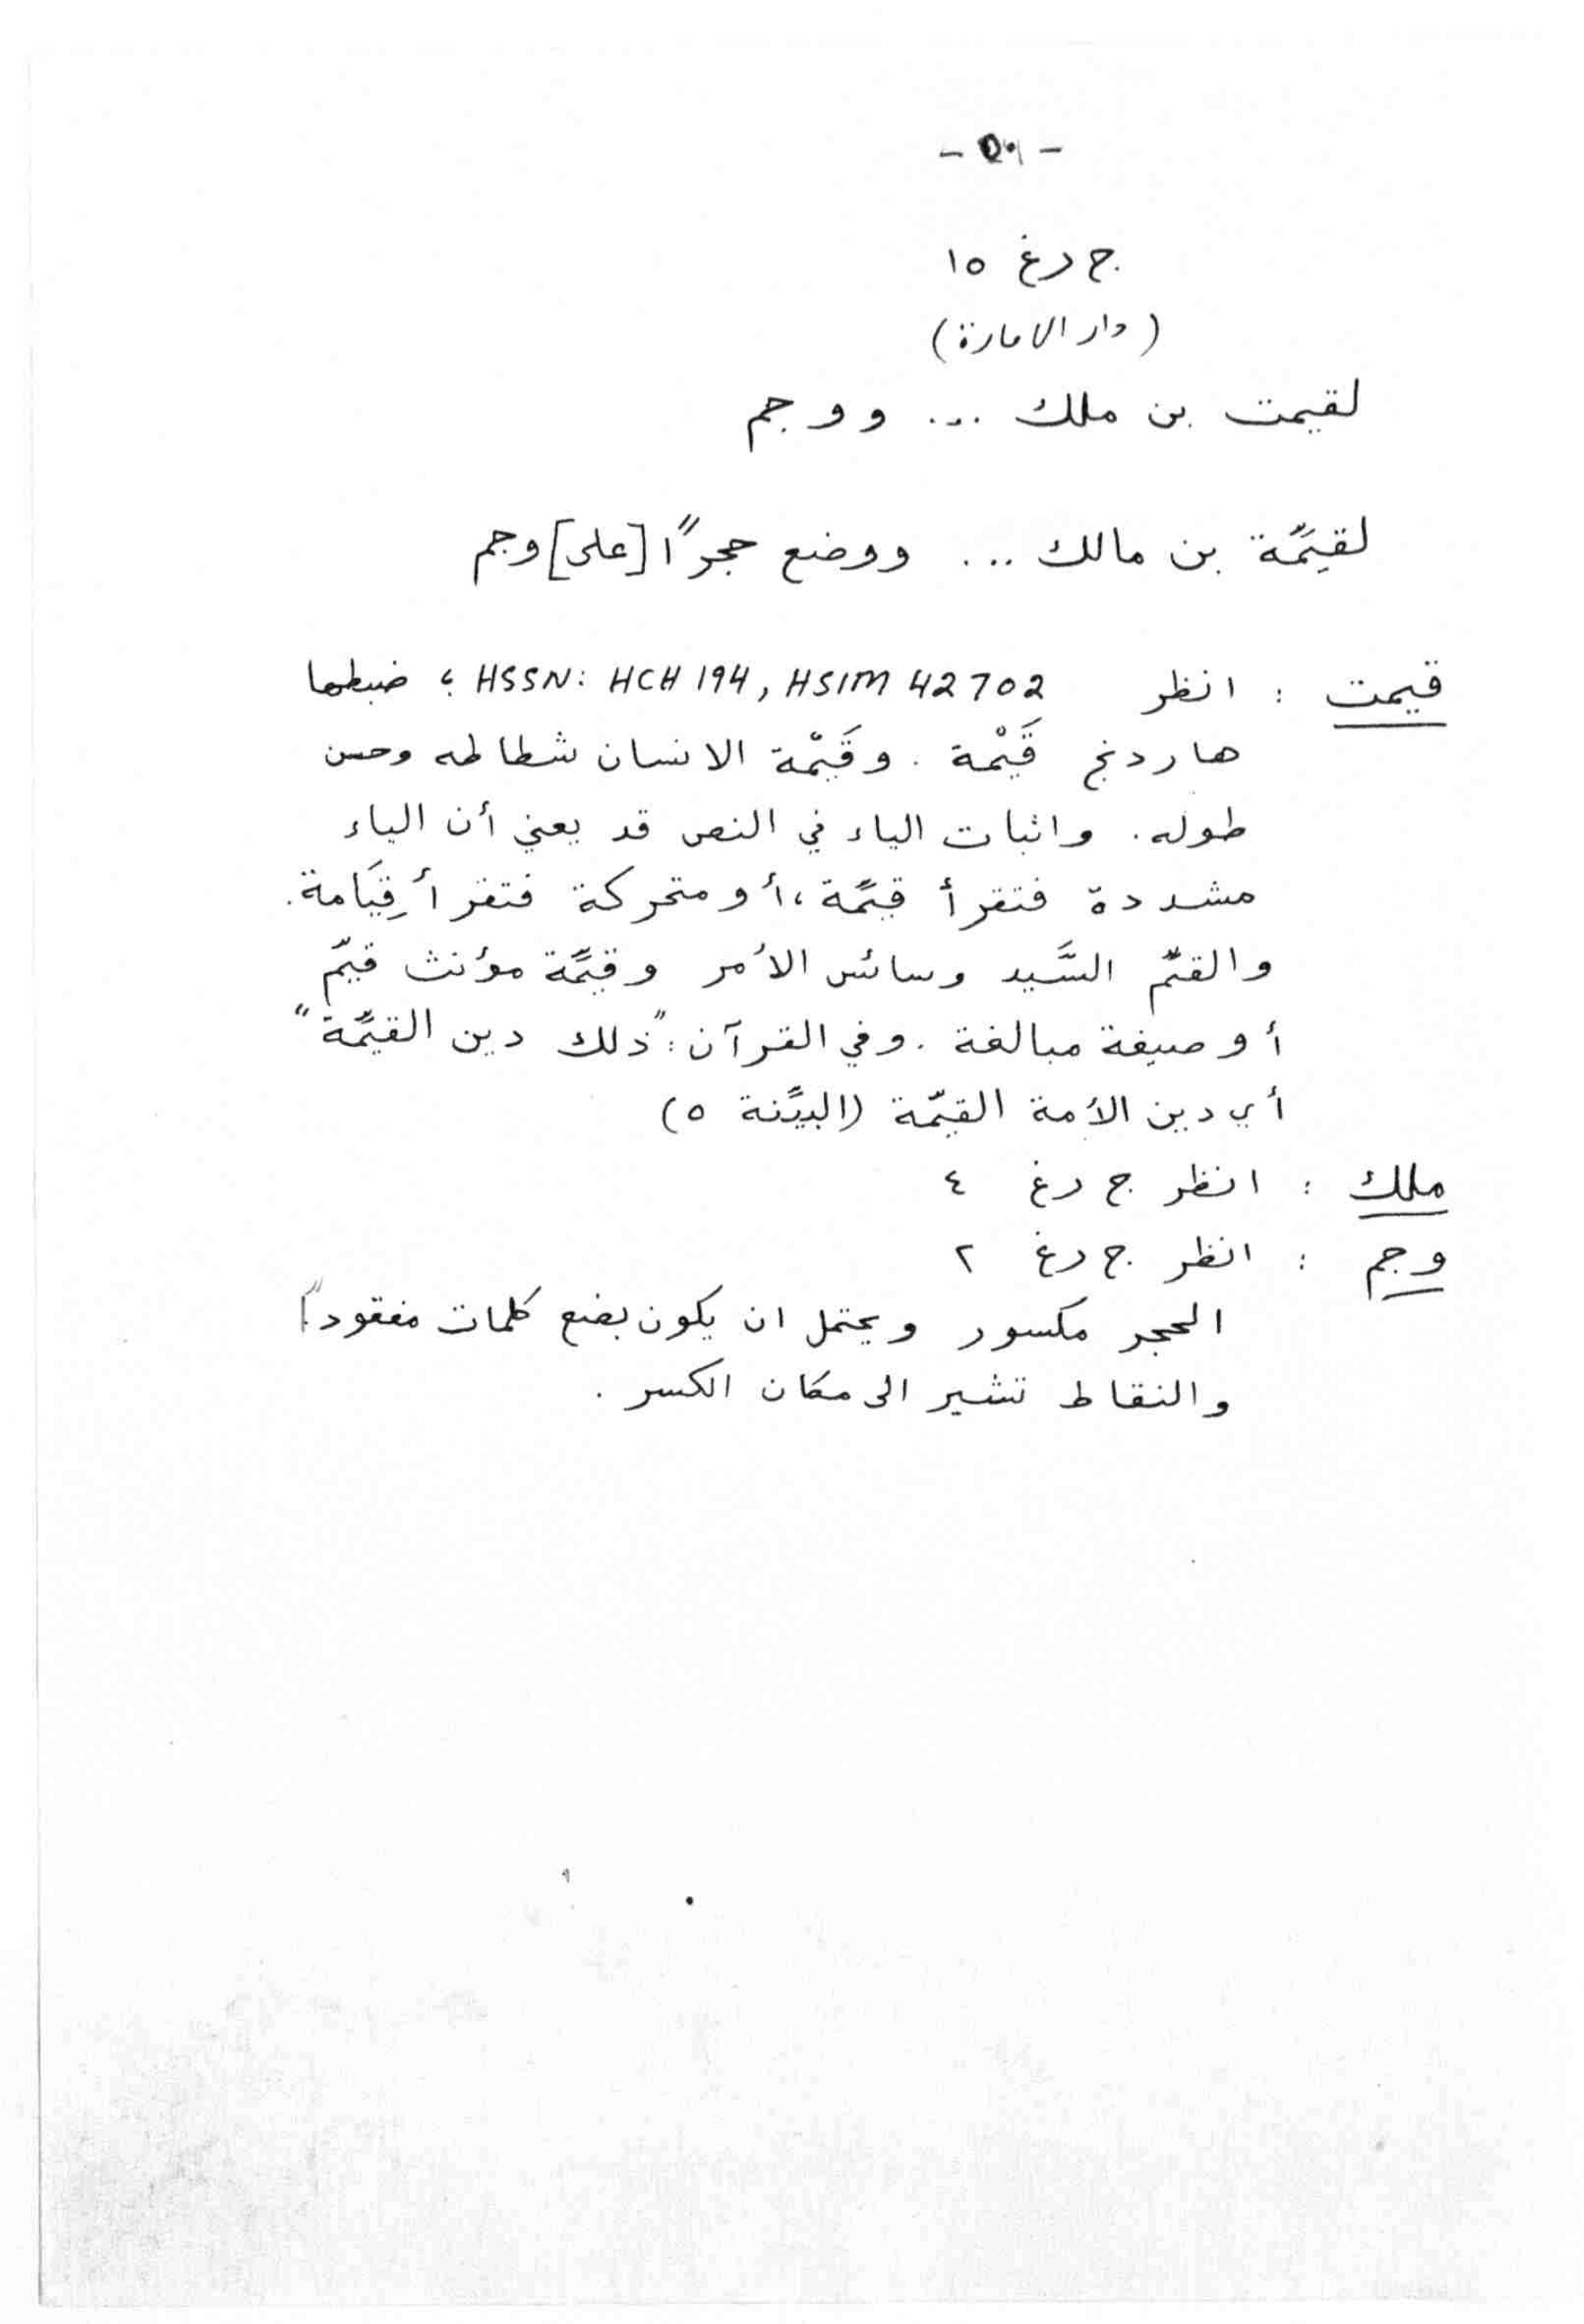 - ٥٠ -
ج درغ ١٥
(دار الامارة)
لقيمت بن ملك ... ووجم
لقيِّمة بن مالك ... ووضع حجراً [على] وجم
قيمت : انظر HSSN: HCH 194, HSIM 42702 ؛ ضبطها
هاردنج قَيْمة . وقَيْمة الانسان شطاطه وحسن
طوله. واثبات الياء في النص قد يعني أن الياء
مشددة فتقرأ قيِّمة، أو متحركة فتقرأ قِيَامة.
والقيِّم السَّيد وسائس الأمر وقيِّمة مؤنث قيِّم
أو صيغة مبالغة . وفي القرآن : "ذلك دين القيِّمة"
أي دين الأمة القيّمة (البيِّنة ٥)
ملك : انظر ج درغ ٤
وجم : انظر ج درغ ٢
الحجر مكسور ويحتمل ان يكون بضع كلمات مفقوداً
والنقاط تشير الى مكان الكسر .